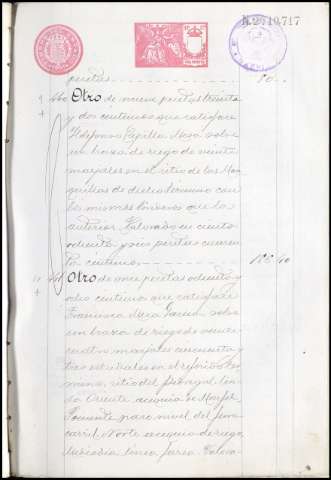 N.2.719,717
pesetas 80
460 Otro de nueve pesetas treinta
y dos centimos que satisface
Ildefonso Padilla Mesa sobre
un brazo de riego de veinte
marjales en el sitio de las
de dicho termino con
los mismos linderos que la
anterior. Valorado en ciento
ochenta y seis pesetas cuaren
ta centimos 186 40
461 Otro de once pesetas ochenta y
ocho centimos que satisface
Francisco Garcia sobre
un brazo de riego de veinte
cuatro marjales cincuenta y
tres estadales en el referido ter
mino, sitio del linda
Oriente acequia de
Poniente paso nivel del ferro
carril, Norte acequia de riego,
Mediodia Valora-